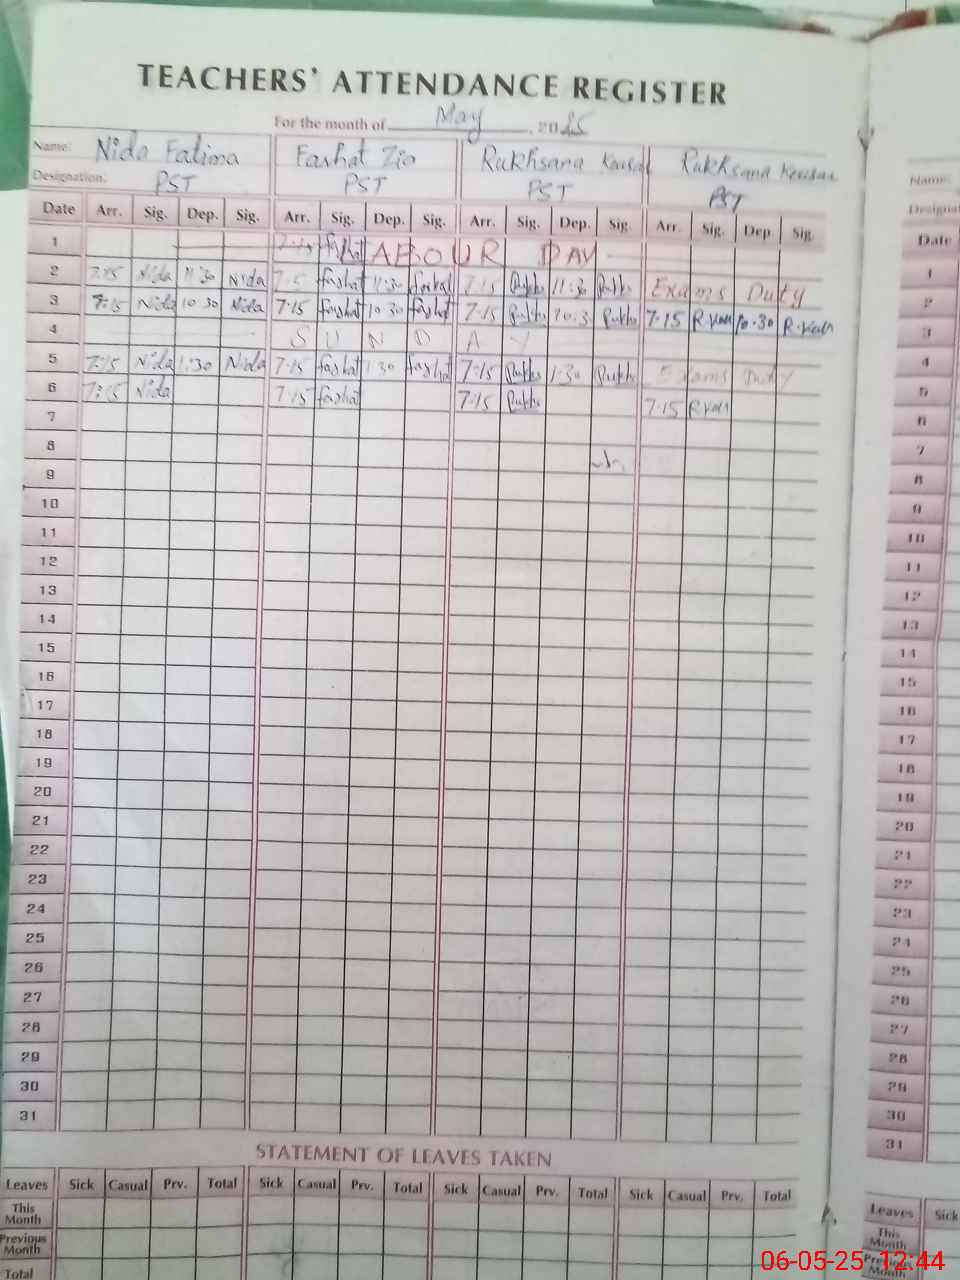 TEACHERS' ATTENDANCE REGISTER
For the month of May, 2025
Name: Nida Fatima Farhat Zia Rukhsana Kousar Rukhsana Kousar Name:
Designation: PST PST PST PST
Date Arr. Sig. Dep. Sig. Arr. Sig. Dep. Sig. Arr. Sig. Dep. Sig. Arr. Sig. Dep. Sig. Date
1 LABOUR DAY 1
2 7:15 Nida 11:30 Nida Farhat 11:30 Farhat 7:15 Rukhs 11:30 Rukhs Exams Duty 2
3 7:15 Nida 10:30 Nida 7:15 Farhat 10:30 Farhat 7:15 Rukhs 10:3 Rukhs 7:15 R.Kou 10:30 R.Kou 3
4 SUNDAY 4
5 7:15 Nida 1:30 Nida 7:15 Farhat 1:30 Farhat 7:15 Rukhs 1:30 Rukhs Exams Duty 5
6 7:15 Nida 7:15 Farhat 7:15 Rukhs 7:15 R.Kou 6
7 7
8 8
9 9
10 10
11 11
12 12
13 13
14 14
15 15
16 16
17 17
18 18
19 19
20 20
21 21
22 22
23 23
24 24
25 25
26 26
27 27
28 28
29 29
30 30
31 31
STATEMENT OF LEAVES TAKEN
Leaves Sick Casual Prv. Total Sick Casual Prv. Total Sick Casual Prv. Total Sick Casual Prv. Total Leaves Sick
This Month This Month
Previous Month
Total
06-05-25 12:44